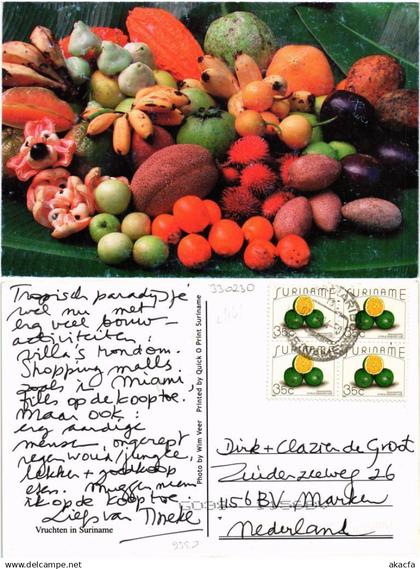 Tropisch paradijsje
wel nu met
erg veel bouw-
activiteiten:
villa's rondom.
Shopping malls
zoals in Miami,
files op de koop toe.
Maar ook:
erg aardige
mensen, ongerept
regenwoud/jungle,
lekker + goedkoop
eten. Muggen neem
ik op de koop toe.
Liefs van Mieke
Vruchten in Suriname
Photo by Wim Veer Printed by Quick O Print Suriname
330230
SURINAME SURINAME
35c 35c
SURINAME SURINAME
35c 35c
Dirk + Clazien de Groot
Zuiderzeeweg 26
1156 BV Marken
Nederland
www.akacoll.com